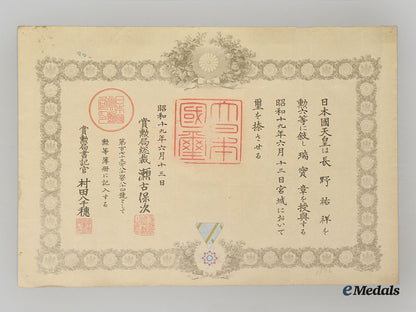 日本國天皇は長野祐祥を
勲六等に敍し瑞寶章を授與する
昭和十九年六月十三日宮城において
璽を捺させる
大日本國璽
昭和十九年六月十三日
賞勲局総裁 瀬古保次
勲等簿冊に記入する
賞勲局書記官 村田八千穂
eMedals